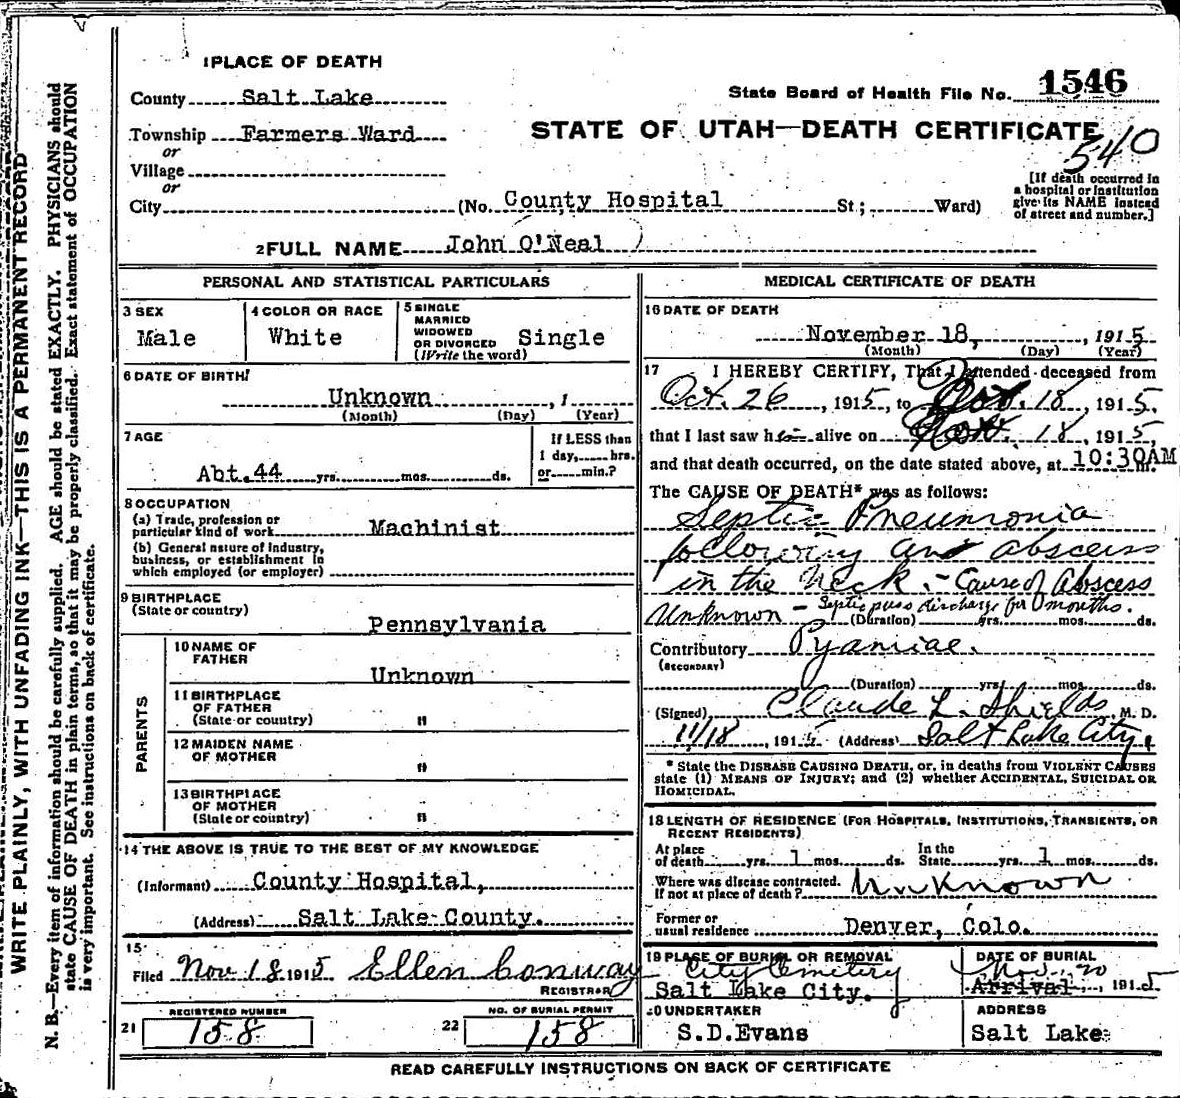 1 PLACE OF DEATH
County Salt Lake
State Board of Health File No. 1546
Township Farmers Ward
STATE OF UTAH—DEATH CERTIFICATE
540
or
Village
or
[If death occurred in a hospital or institution give its NAME instead of street and number.]
City (No. County Hospital St; Ward)
2 FULL NAME John O'Neal
PERSONAL AND STATISTICAL PARTICULARS
3 SEX
Male
4 COLOR OR RACE
White
5 SINGLE
MARRIED
WIDOWED
OR DIVORCED
(Write the word)
Single
6 DATE OF BIRTH
Unknown , 1
(Month) (Day) (Year)
7 AGE
Abt. 44 yrs. mos. ds.
If LESS than
1 day, hrs.
or min.?
8 OCCUPATION
(a) Trade, profession or
particular kind of work Machinist
(b) General nature of industry,
business, or establishment in
which employed (or employer)
9 BIRTHPLACE
(State or country)
Pennsylvania
PARENTS
10 NAME OF
FATHER
Unknown
11 BIRTHPLACE
OF FATHER
(State or country) "
12 MAIDEN NAME
OF MOTHER "
13 BIRTHPLACE
OF MOTHER
(State or country) "
14 THE ABOVE IS TRUE TO THE BEST OF MY KNOWLEDGE
(Informant) County Hospital,
(Address) Salt Lake County.
15
Filed Nov 18 1915 Ellen Conway
REGISTRAR
REGISTERED NUMBER
21 158
NO. OF BURIAL PERMIT
22 158
MEDICAL CERTIFICATE OF DEATH
16 DATE OF DEATH
November 18, , 1915
(Month) (Day) (Year)
17 I HEREBY CERTIFY, That I attended deceased from
Oct. 26 , 1915, to Nov. 18 , 1915.
that I last saw him alive on Nov. 18 , 1915,
and that death occurred, on the date stated above, at 10:30AM m.
The CAUSE OF DEATH* was as follows:
Septic Pneumonia
following an abscess
in the Neck. - Cause of Abscess
Unknown - Septic puss discharge for months.
(Duration) yrs. mos. ds.
Contributory Pyamiae.
(SECONDARY)
(Duration) yrs. mos. ds.
(Signed) Claude L. Shields M. D.
11/18 , 1915 (Address) Salt Lake City.
* State the DISEASE CAUSING DEATH, or, in deaths from VIOLENT CAUSES
state (1) MEANS OF INJURY; and (2) whether ACCIDENTAL, SUICIDAL OR
HOMICIDAL.
18 LENGTH OF RESIDENCE (FOR HOSPITALS, INSTITUTIONS, TRANSIENTS, OR
RECENT RESIDENTS)
At place
of death yrs. 1 mos. ds.
In the
State yrs. 1 mos. ds.
Where was disease contracted.
If not at place of death? Unknown
Former or
usual residence Denver, Colo.
19 PLACE OF BURIAL OR REMOVAL
City Cemetery
Salt Lake City.
DATE OF BURIAL
Nov. 20
Arrival , 1915
20 UNDERTAKER
S.D.Evans
ADDRESS
Salt Lake
READ CAREFULLY INSTRUCTIONS ON BACK OF CERTIFICATE
WRITE PLAINLY, WITH UNFADING INK—THIS IS A PERMANENT RECORD
N. B.—Every item of information should be carefully supplied. AGE should be stated EXACTLY. PHYSICIANS should
state CAUSE OF DEATH in plain terms, so that it may be properly classified. Exact statement of OCCUPATION
is very important. See instructions on back of certificate.